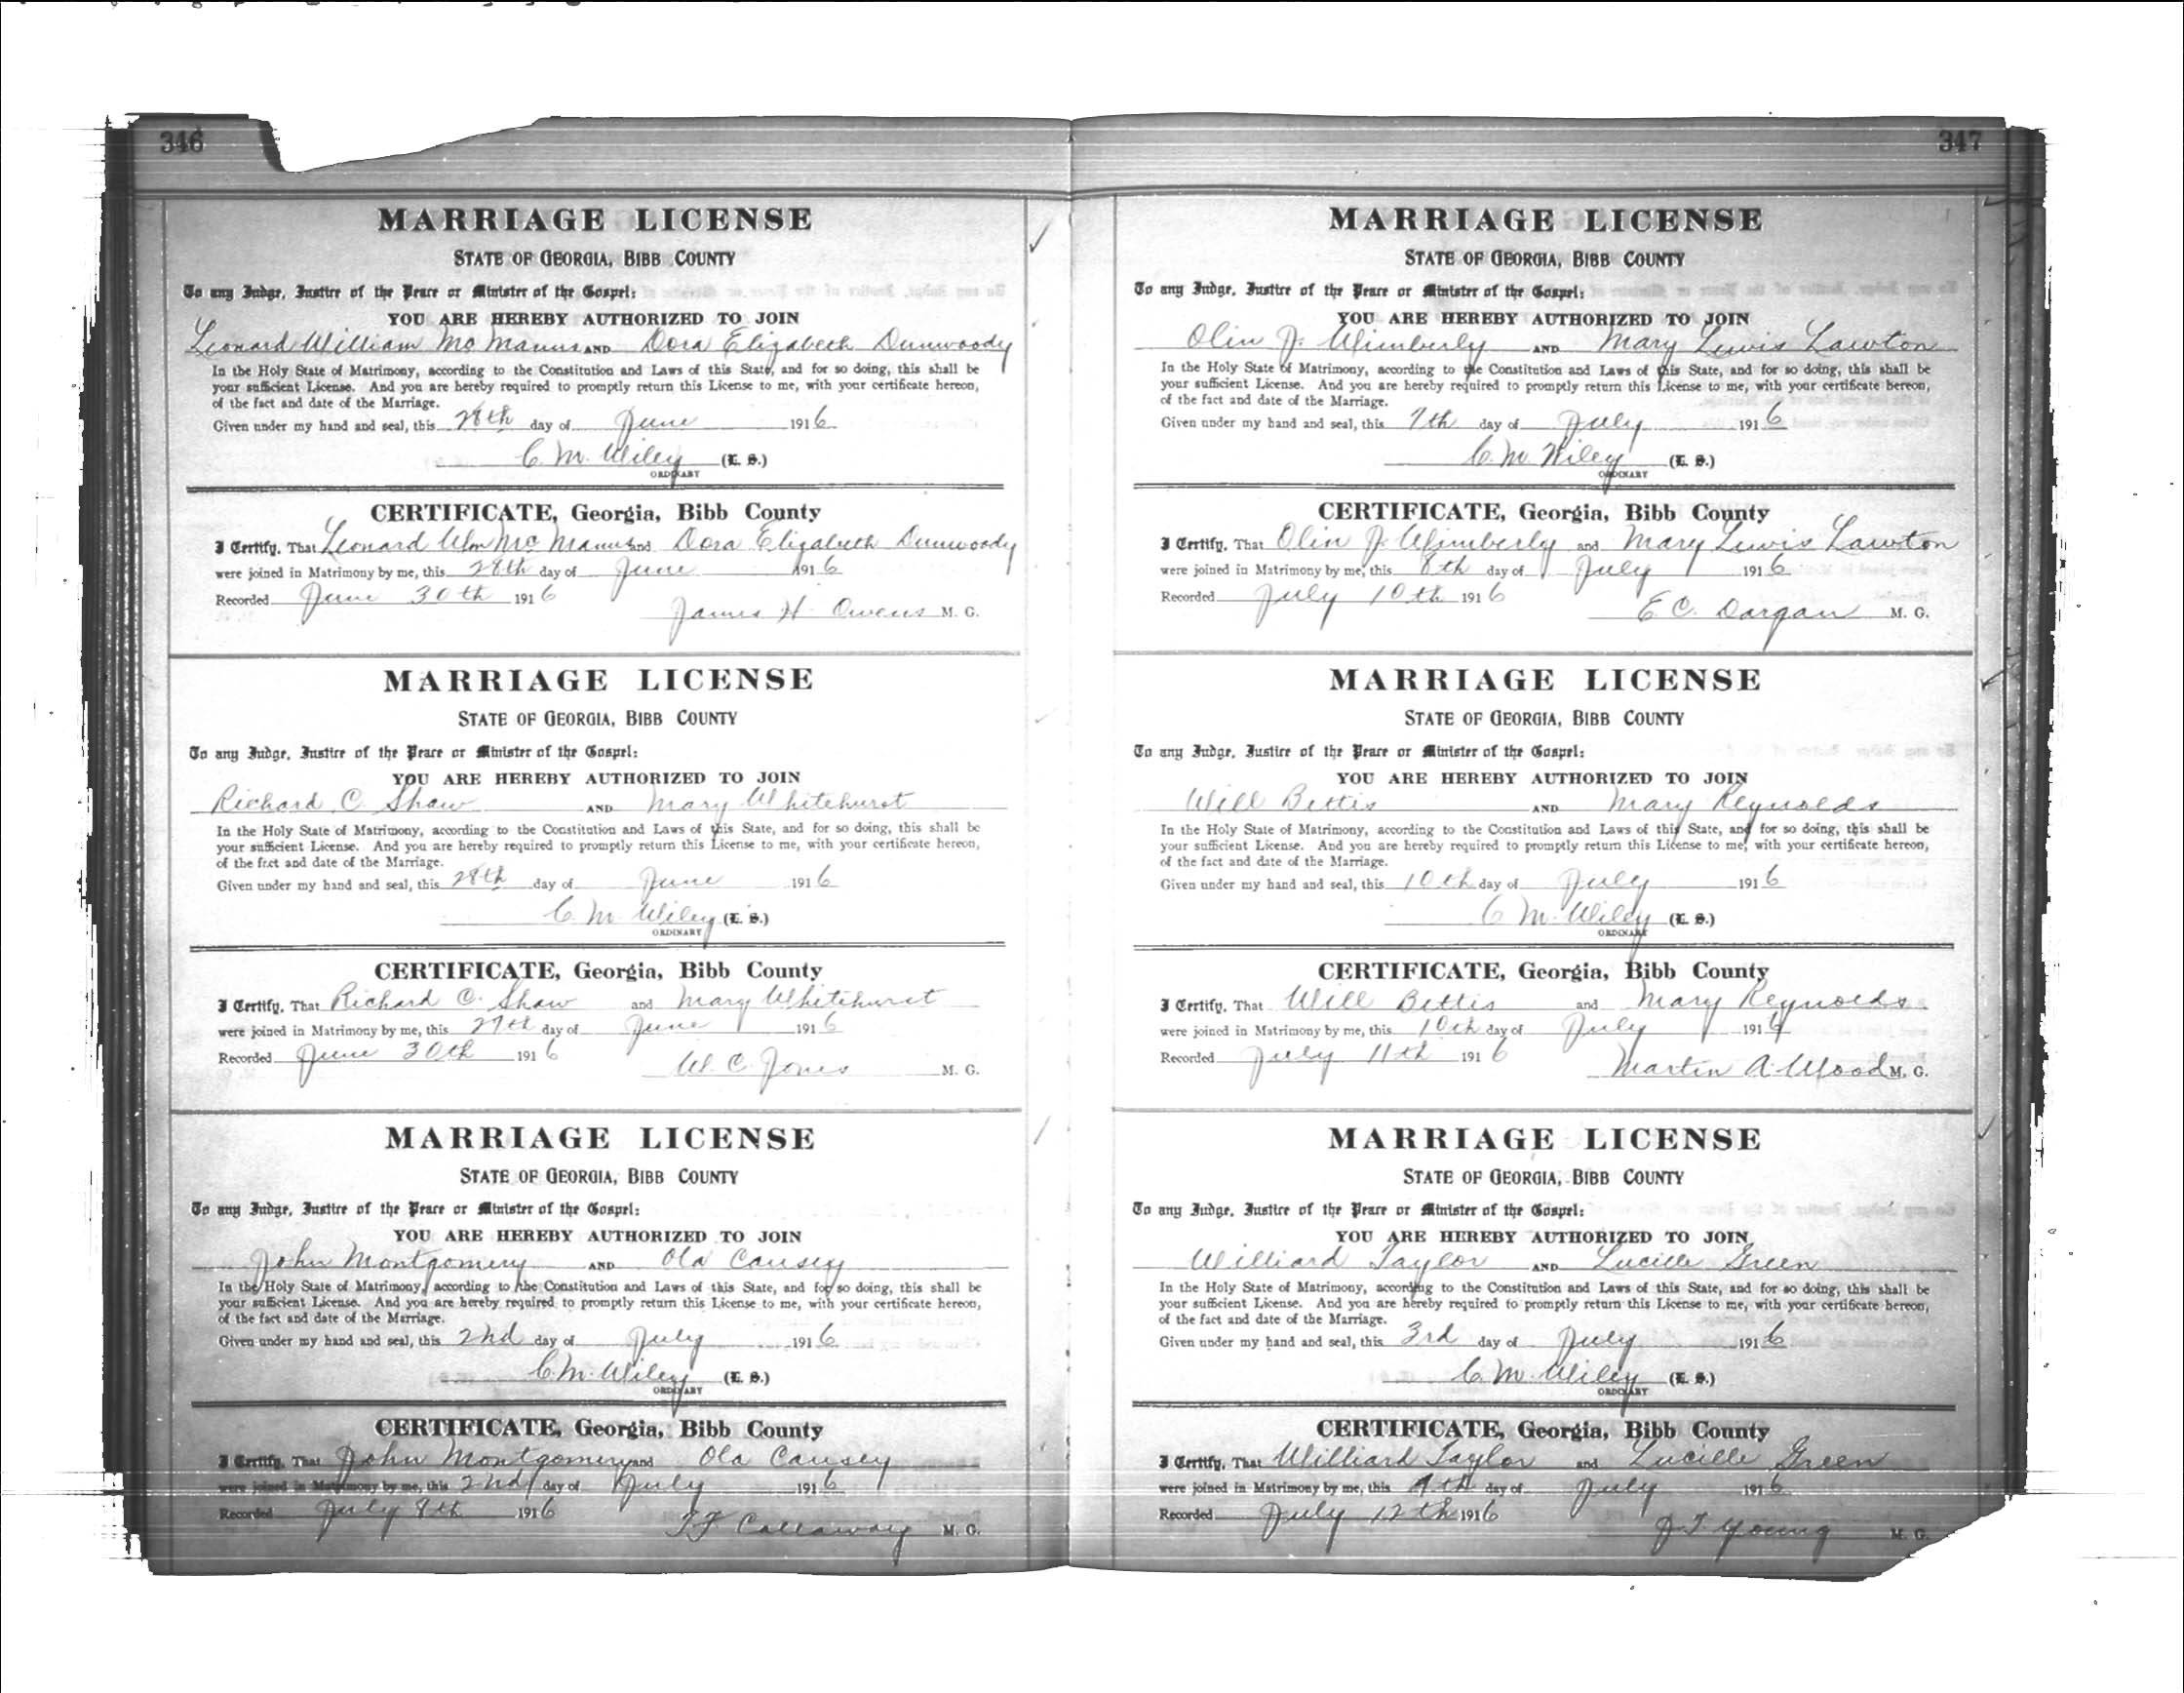 346
MARRIAGE LICENSE
STATE OF GEORGIA, BIBB COUNTY
To any Judge, Justice of the Peace or Minister of the Gospel:
YOU ARE HEREBY AUTHORIZED TO JOIN
Leonard William McManus AND Dora Elizabeth Dunwoody
In the Holy State of Matrimony, according to the Constitution and Laws of this State, and for so doing, this shall be
your sufficient License. And you are hereby required to promptly return this License to me, with your certificate hereon,
of the fact and date of the Marriage.
Given under my hand and seal, this 28th day of June 1916
C. M. Wiley (L. S.)
ORDINARY
CERTIFICATE, Georgia, Bibb County
I Certify, That Leonard Wm McManus and Dora Elizabeth Dunwoody
were joined in Matrimony by me, this 28th day of June 1916
Recorded June 30th 1916
James H. Owens M. G.
MARRIAGE LICENSE
STATE OF GEORGIA, BIBB COUNTY
To any Judge, Justice of the Peace or Minister of the Gospel:
YOU ARE HEREBY AUTHORIZED TO JOIN
Richard C. Shaw AND Mary Whitehurst
In the Holy State of Matrimony, according to the Constitution and Laws of this State, and for so doing, this shall be
your sufficient License. And you are hereby required to promptly return this License to me, with your certificate hereon,
of the fact and date of the Marriage.
Given under my hand and seal, this 28th day of June 1916
C. M. Wiley (L. S.)
ORDINARY
CERTIFICATE, Georgia, Bibb County
I Certify, That Richard C. Shaw and Mary Whitehurst
were joined in Matrimony by me, this 29th day of June 1916
Recorded June 30th 1916
W. C. Jones M. G.
MARRIAGE LICENSE
STATE OF GEORGIA, BIBB COUNTY
To any Judge, Justice of the Peace or Minister of the Gospel:
YOU ARE HEREBY AUTHORIZED TO JOIN
John Montgomery AND Ola Causey
In the Holy State of Matrimony, according to the Constitution and Laws of this State, and for so doing, this shall be
your sufficient License. And you are hereby required to promptly return this License to me, with your certificate hereon,
of the fact and date of the Marriage.
Given under my hand and seal, this 2nd day of July 1916
C. M. Wiley (L. S.)
ORDINARY
CERTIFICATE, Georgia, Bibb County
I Certify, That John Montgomery and Ola Causey
were joined in Matrimony by me, this 2nd day of July 1916
Recorded July 8th 1916
T F Callaway M. G.
347
MARRIAGE LICENSE
STATE OF GEORGIA, BIBB COUNTY
To any Judge, Justice of the Peace or Minister of the Gospel:
YOU ARE HEREBY AUTHORIZED TO JOIN
Olin J. Wimberly AND Mary Lewis Lawton
In the Holy State of Matrimony, according to the Constitution and Laws of this State, and for so doing, this shall be
your sufficient License. And you are hereby required to promptly return this License to me, with your certificate hereon,
of the fact and date of the Marriage.
Given under my hand and seal, this 7th day of July 1916
C. M. Wiley (L. S.)
ORDINARY
CERTIFICATE, Georgia, Bibb County
I Certify, That Olin J. Wimberly and Mary Lewis Lawton
were joined in Matrimony by me, this 8th day of July 1916
Recorded July 10th 1916
E C. Dargan M. G.
MARRIAGE LICENSE
STATE OF GEORGIA, BIBB COUNTY
To any Judge, Justice of the Peace or Minister of the Gospel:
YOU ARE HEREBY AUTHORIZED TO JOIN
Will Bettis AND Mary Reynolds
In the Holy State of Matrimony, according to the Constitution and Laws of this State, and for so doing, this shall be
your sufficient License. And you are hereby required to promptly return this License to me, with your certificate hereon,
of the fact and date of the Marriage.
Given under my hand and seal, this 10th day of July 1916
C. M. Wiley (L. S.)
ORDINARY
CERTIFICATE, Georgia, Bibb County
I Certify, That Will Bettis and Mary Reynolds
were joined in Matrimony by me, this 10th day of July 1916
Recorded July 11th 1916
Martin A. Wood M. G.
MARRIAGE LICENSE
STATE OF GEORGIA, BIBB COUNTY
To any Judge, Justice of the Peace or Minister of the Gospel:
YOU ARE HEREBY AUTHORIZED TO JOIN
Williard Taylor AND Lucille Green
In the Holy State of Matrimony, according to the Constitution and Laws of this State, and for so doing, this shall be
your sufficient License. And you are hereby required to promptly return this License to me, with your certificate hereon,
of the fact and date of the Marriage.
Given under my hand and seal, this 3rd day of July 1916
C. M. Wiley (L. S.)
ORDINARY
CERTIFICATE, Georgia, Bibb County
I Certify, That Williard Taylor and Lucille Green
were joined in Matrimony by me, this day of July 1916
Recorded July 12th 1916
J. T. Young M. G.